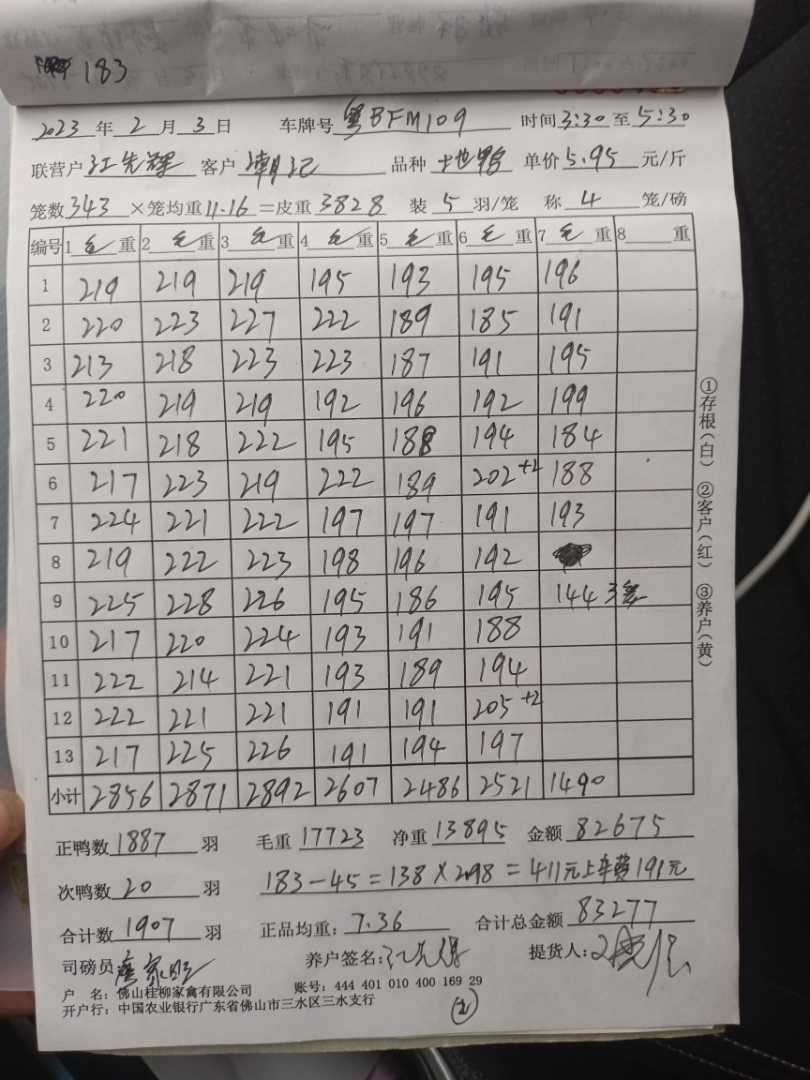 183
2023 年 2 月 3 日 车牌号 粤BFM109 时间 3:30 至 5:30
联营户 江先辉 客户 潮记 品种 土地鸭 单价 5.95 元/斤
笼数 343 ×笼均重 11.16 =皮重 3828 装 5 羽/笼 称 4 笼/磅
编号 1 毛 重 2 毛 重 3 毛 重 4 毛 重 5 毛 重 6 毛 重 7 毛 重 8 重
1 219 219 219 195 193 195 196
2 220 223 227 222 189 185 191
3 213 218 223 223 187 191 195
4 220 219 219 192 196 192 199
5 221 218 222 195 188 194 184
6 217 223 219 222 189 202+2 188
7 224 221 222 197 197 191 193
8 219 222 223 198 196 192
9 225 228 226 195 186 195 144 3笼
10 217 220 224 193 191 188
11 222 214 221 193 189 194
12 222 221 221 191 191 205+2
13 217 225 226 191 194 197
小计 2856 2871 2892 2607 2486 2521 1490
①存根(白) ②客户(红) ③养户(黄)
正鸭数 1887 羽 毛重 17723 净重 13895 金额 82675
次鸭数 20 羽 183-45=138×2.98=411元上车费191元
合计数 1907 羽 正品均重: 7.36 合计总金额 83277
司磅员 养户签名: 提货人:
户 名: 佛山桂柳家禽有限公司 账号: 444 401 010 400 169 29
开户行: 中国农业银行广东省佛山市三水区三水支行
②